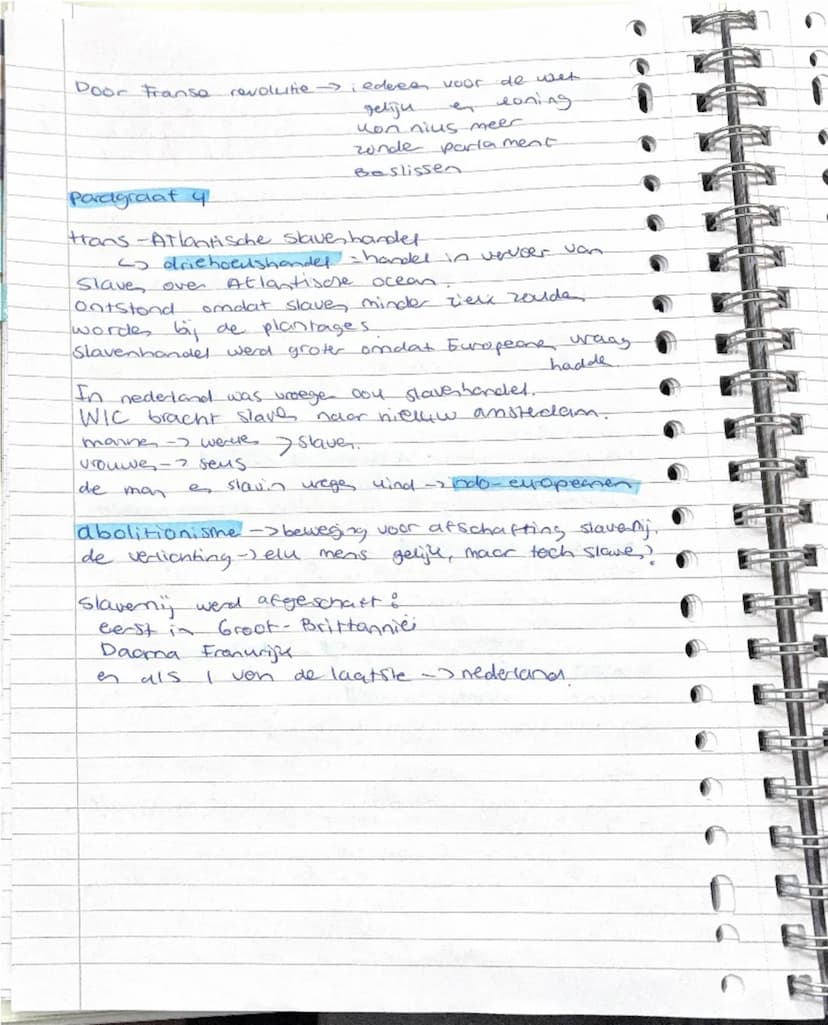 Door Franse revolutie -> iedereen voor de wet
gelijk en koning
kon niks meer
zonder parlament
Beslissen
Paragraaf 4
trans-Atlantische slavenhandel
↳ driehoekshandel = handel in vervoer van
slaven over Atlantische ocean.
ontstond omdat slaven minder ziek zouden
worden bij de plantages.
slavenhandel werd groter omdat Europeanen vraag
hadde
In nederland was vroeger ook slavenhandel.
WIC bracht slaven naar nieuw amsterdam.
mannen -> werken > slaven.
vrouwen -> seks
de man en slavin kregen kind -> indo-europeanen
abolitionisme -> beweging voor afschaffing slavernij.
de verlichting -> elk mens gelijk, maar toch slaven?
Slavernij werd afgeschaft:
eerst in Groot-Brittannië
Daarna Frankrijk
en als 1 van de laatste -> nederland.